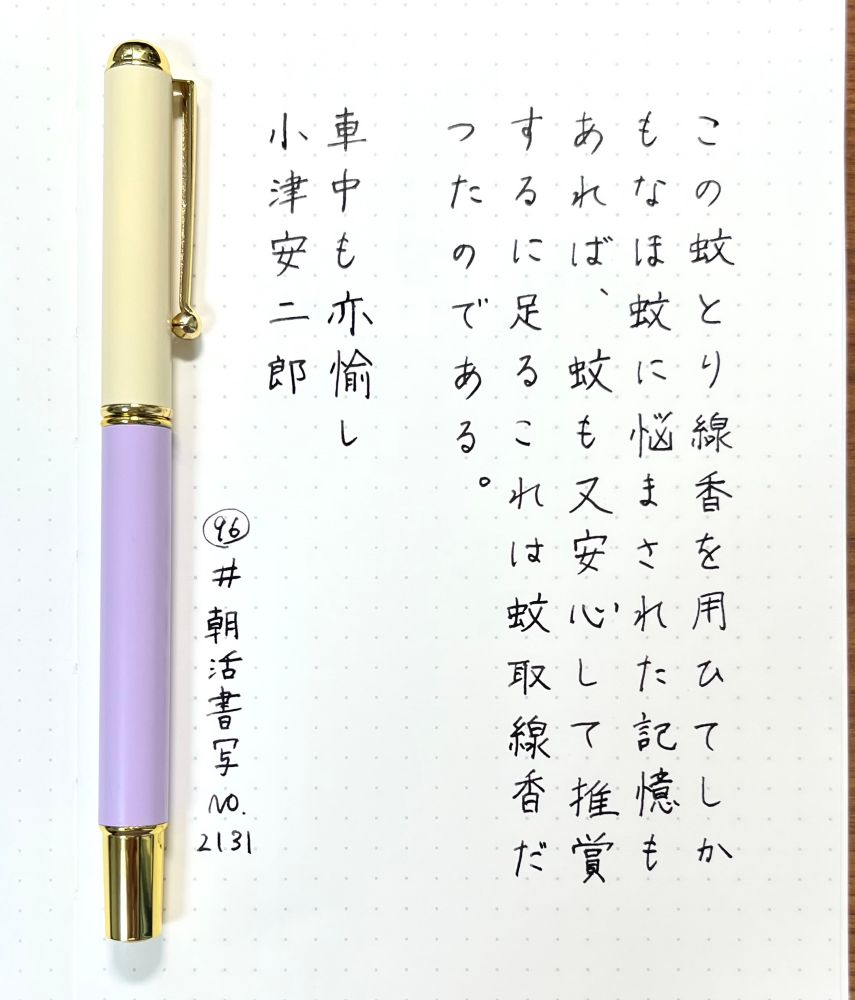 この蚊とり線香を用ひてしか
もなほ蚊に悩まされた記憶も
あれば、蚊も又安心して推賞
するに足るこれは蚊取線香だ
つたのである。
車中も亦愉し
小津安二郎
96
#朝活書写
NO.
2131